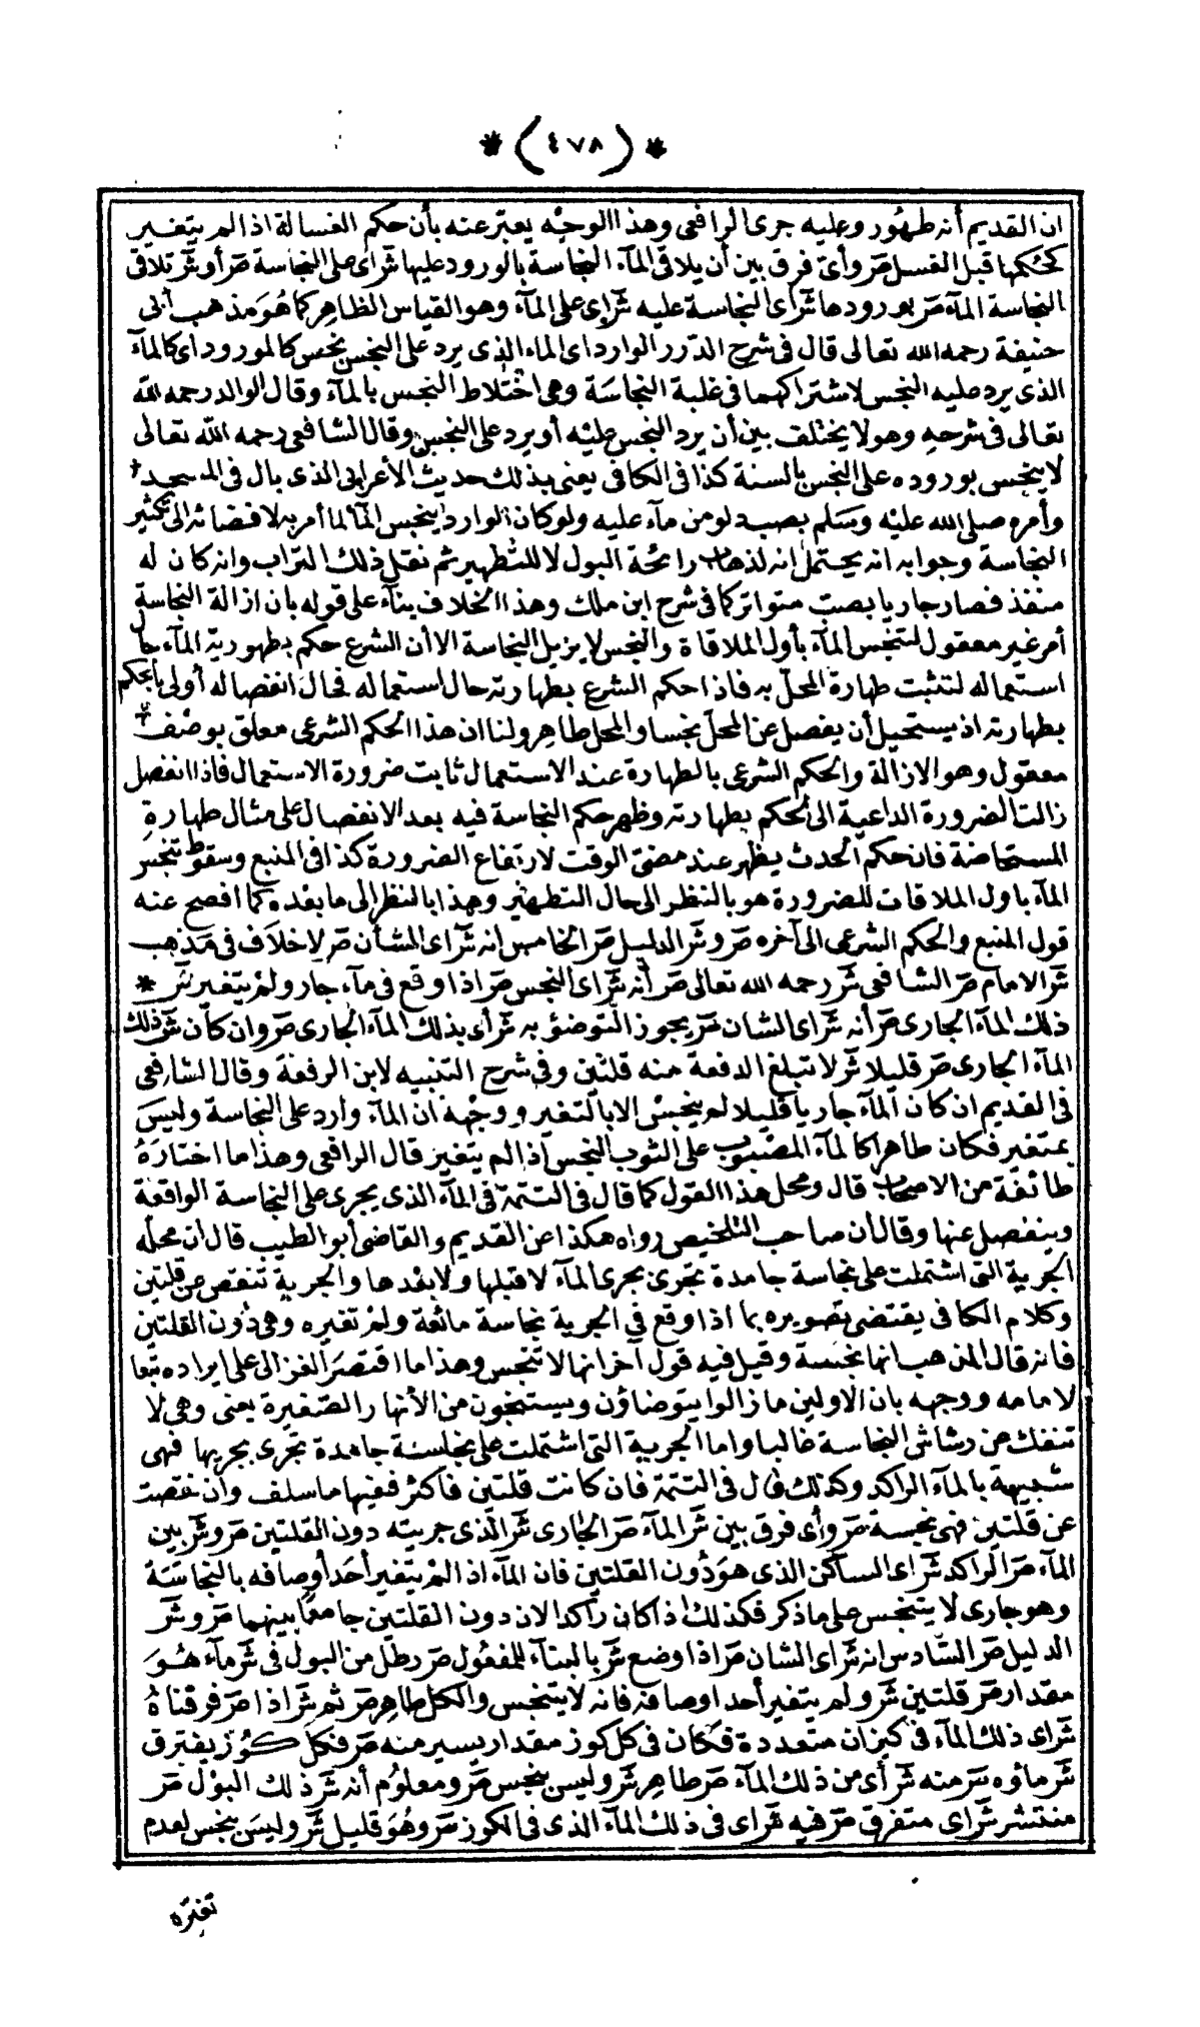 * (٤٧٨) *
ان القديم أنه طهور وعليه جرى الرافعي وهذا الوجه يعبر عنه بأن حكم الغسالة اذا لم يتغير
كحكمها قبل الغسل ص وأى فرق بين أن يلاقى المآء النجاسة بالورود عليها ش أى على النجاسة ص أو ش تلاقى
النجاسة المآء ص بورودها ش أى النجاسة عليه ش أى على المآء وهو القياس الظاهر كما هو مذهب أبى
حنيفة رحمه الله تعالى قال فى شرح الدرر الوارد اى الماء الذى يرد على النجس نجس كالمورود اى كالمآء
الذى يرد عليه النجس لاشتراكهما فى غلبة النجاسة وهى اختلاط النجس بالمآء وقال الوالد رحمه الله
تعالى فى شرحه وهو لا يختلف بين أن يرد النجس عليه أو يرد على النجس وقال الشافعى رحمه الله تعالى
لا ينجس بوروده على النجس بالسنة كذا فى الكافى يعنى بذلك حديث الأعرابى الذى بال فى المسجد
وأمره صلى الله عليه وسلم بصب دلو من مآء عليه ولو كان الوارد ينجس المآء لما أمر به لافضائه الى تكثير
النجاسة وجوابه انه يحتمل انه لذهاب رائحة البول لا للتطهير ثم نقل ذلك التراب وانه كان له
منفذ فصار جاريا بصب متواتر كما فى شرح ابن ملك وهذا الخلاف بنآء على قوله بان ازالة النجاسة
أمر غير معقول لتنجس المآء بأول الملاقاة والنجس لا يزيل النجاسة الا أن الشرع حكم بطهورية المآء حال
استعماله لتثبت طهارة المحل به فاذا حكم الشرع بطهارته حال استعماله فحال انفصاله أولى بالحكم
بطهارته اذ يستحيل أن يفصل عن المحل نجسا والمحل طاهر ولنا ان هذا الحكم الشرعى معلق بوصف
معقول وهو الازالة والحكم الشرعى بالطهارة عند الاستعمال ثابت ضرورة الاستعمال فاذا انفصل
زالت الضرورة الداعية الى الحكم بطهارته وظهر حكم النجاسة فيه بعد الانفصال على مثال طهارة
المستحاضة فان حكم الحدث يظهر عند مضى الوقت لارتفاع الضرورة كذا فى المنبع وسقوط تنجس
المآء باول الملاقات للضرورة هو بالنظر الى حال التطهير وهذا بالنظر الى ما بعده كما افصح عنه
قول المنبع والحكم الشرعى الى آخره ص و ش الدليل ص الخامس انه ش أى الشأن ص لا خلاف فى مذهب
ش الامام ص الشافعى ش رحمه الله تعالى ص أنه ش أى النجس ص اذا وقع فى مآء جار ولم يتغير ش *
ذلك المآء الجارى ص أنه ش اى الشان ص يجوز التوضؤ به ش أى بذلك المآء الجارى ص وان كان ش ذلك
المآء الجارى ص قليلا ش لا تبلغ الدفعة منه قلتين وفى شرح التنبيه لابن الرفعة وقال الشافعى
فى القديم ان كان المآء جاريا قليلا لم ينجس الا بالتغير ووجهه ان المآء وارد على النجاسة وليس
بمتغير فكان طاهرا كالمآء المصبوب على الثوب النجس اذا لم يتغير قال الرافعى وهذا ما اختاره
طائفة من الاصحاب قال ومحل هذا القول كما قال فى التتمة فى المآء الذى يجرى على النجاسة الواقعة
وينفصل عنها وقال أن صاحب التلخيص رواه هكذا عن القديم والقاضى أبو الطيب قال أن محله
الجرية التى اشتملت على نجاسة جامدة تجرى بجرى المآء لا قبلها ولا بعدها والجرية تنقص عن قلتين
وكلام الكافى يقتضى تصويره بما اذا وقع في الجرية نجاسة مائعة ولم تغيره وهى دون القلتين
فانه قال المذهب انها نجسة وقيل فيه قول آخر انها لا تنجس وهذا ما اقتصر الغزالى على ايراده تبعا
لامامه ووجهه بان الاولين ما زالوا يتوضاؤن ويستنجون من الأنهار الصغيرة يعنى وهى لا
تنفك عن رشاش النجاسة غالبا واما الجرية التى اشتملت على نجاسة جامدة تجرى بجريها فهى
شبيهة بالمآء الراكد وكذلك قال فى التتمة فان كانت قلتين فاكثر ففيها ما سلف وان نقصت
عن قلتين فهى نجسة ص وأى فرق بين ش المآء ص الجارى ش الذى جريته دون القلتين ص و ش بين
المآء ص الراكد ش اى الساكن الذى هو دون القلتين فان المآء اذا لم يتغير أحد أوصافه بالنجاسة
وهو جارى لا يتنجس على ما ذكر فكذلك اذا كان راكدا لان دون القلتين جامع بينهما ص و ش
الدليل ص السادس انه ش اى الشان ص اذا وضع ش بالبنآء للمفعول ص رطل من البول فى ش مآء هو
مقدار ص قلتين ش ولم يتغير أحد اوصافه فانه لا يتنجس والكل طاهر ص ثم ش اذا ص فرقناه
ش اى ذلك المآء فى كيزان متعددة فكان فى كل كوز مقدار يسير منه ص فكل كوز يفترق
ش ماؤه ش منه ش أى من ذلك المآء ص طاهر ش وليس بنجس ص ومعلوم أنه ش ذلك البول ص
منتشر ش اى متفرق ص فيه ش اى فى ذلك المآء الذى فى الكوز ص وهو قليل ش وليس بنجس لعدم
تغيره